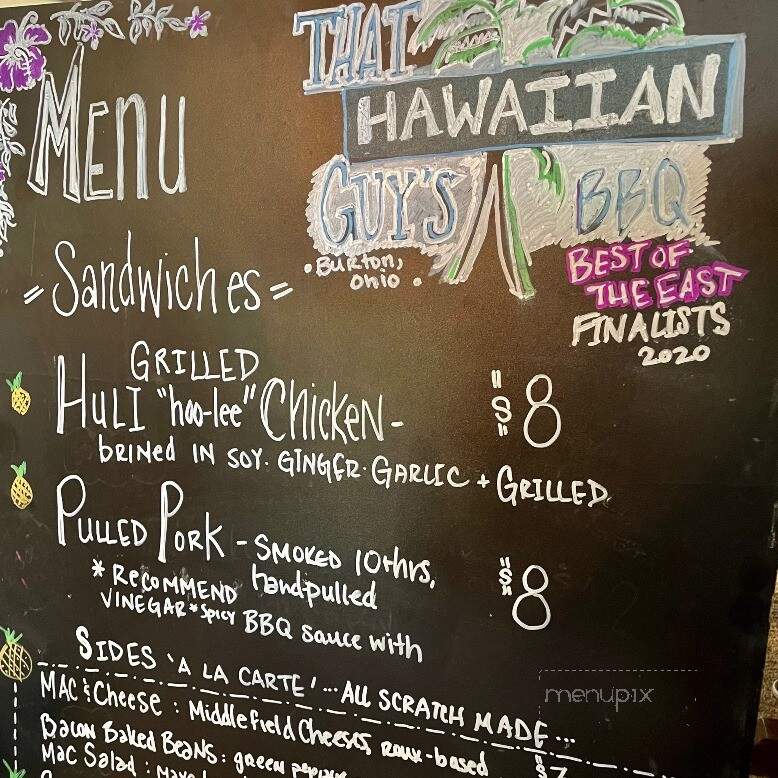 Menu
THAI
HAWAIIAN
GUY'S BBQ
• Burton, Ohio •
BEST OF
THE EAST
FINALISTS
2020
Sandwiches
GRILLED
HULI "hoo-lee" Chicken - "$" 8
brined in soy. Ginger. Garlic + Grilled
Pulled Pork - Smoked 10+hrs, "$" 8
hand-pulled
* Recommend
Vinegar * Spicy BBQ sauce with
SIDES 'A LA CARTE' ... ALL SCRATCH MADE ...
MAC & Cheese : Middlefield Cheeses, roux-based
Bacon Baked Beans : green
Mac Salad :
menupix